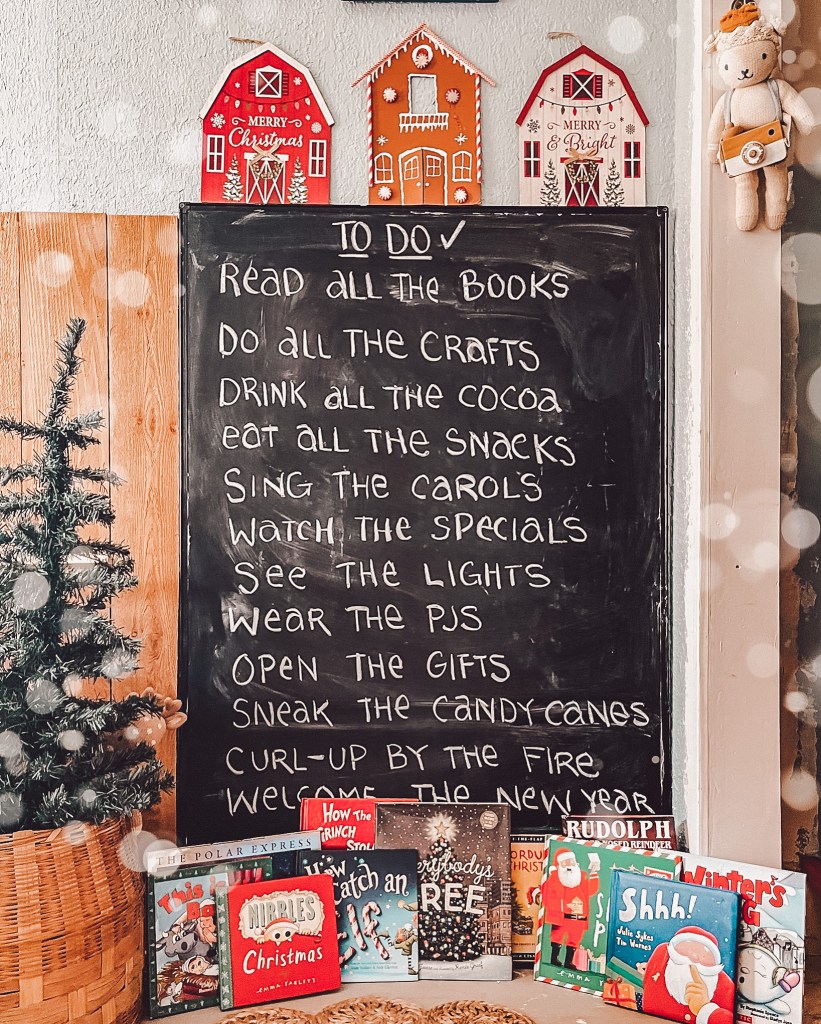 MERRY
Christmas
MERRY
& Bright
TO DO ✓
READ ALL THE BOOKS
DO ALL THE CRAFTS
DRINK ALL THE COCOA
EAT ALL THE SNACKS
SING THE CAROLS
WATCH THE SPECIALS
SEE THE LIGHTS
WEAR THE PJS
OPEN THE GIFTS
SNEAK THE CANDY CANES
CURL-UP BY THE FIRE
WELCOME THE NEW YEAR
How THE
GRINCH
STOL
RUDOLPH
NOSED REINDEER
THE POLAR EXPRESS
How
Catch an
Elf
erybody's
TREE
CHRIST
This
NIBBLES
Christmas
EMMA YARLETT
Shhh!
Julie Sykes
Tim Warnes
Winter's